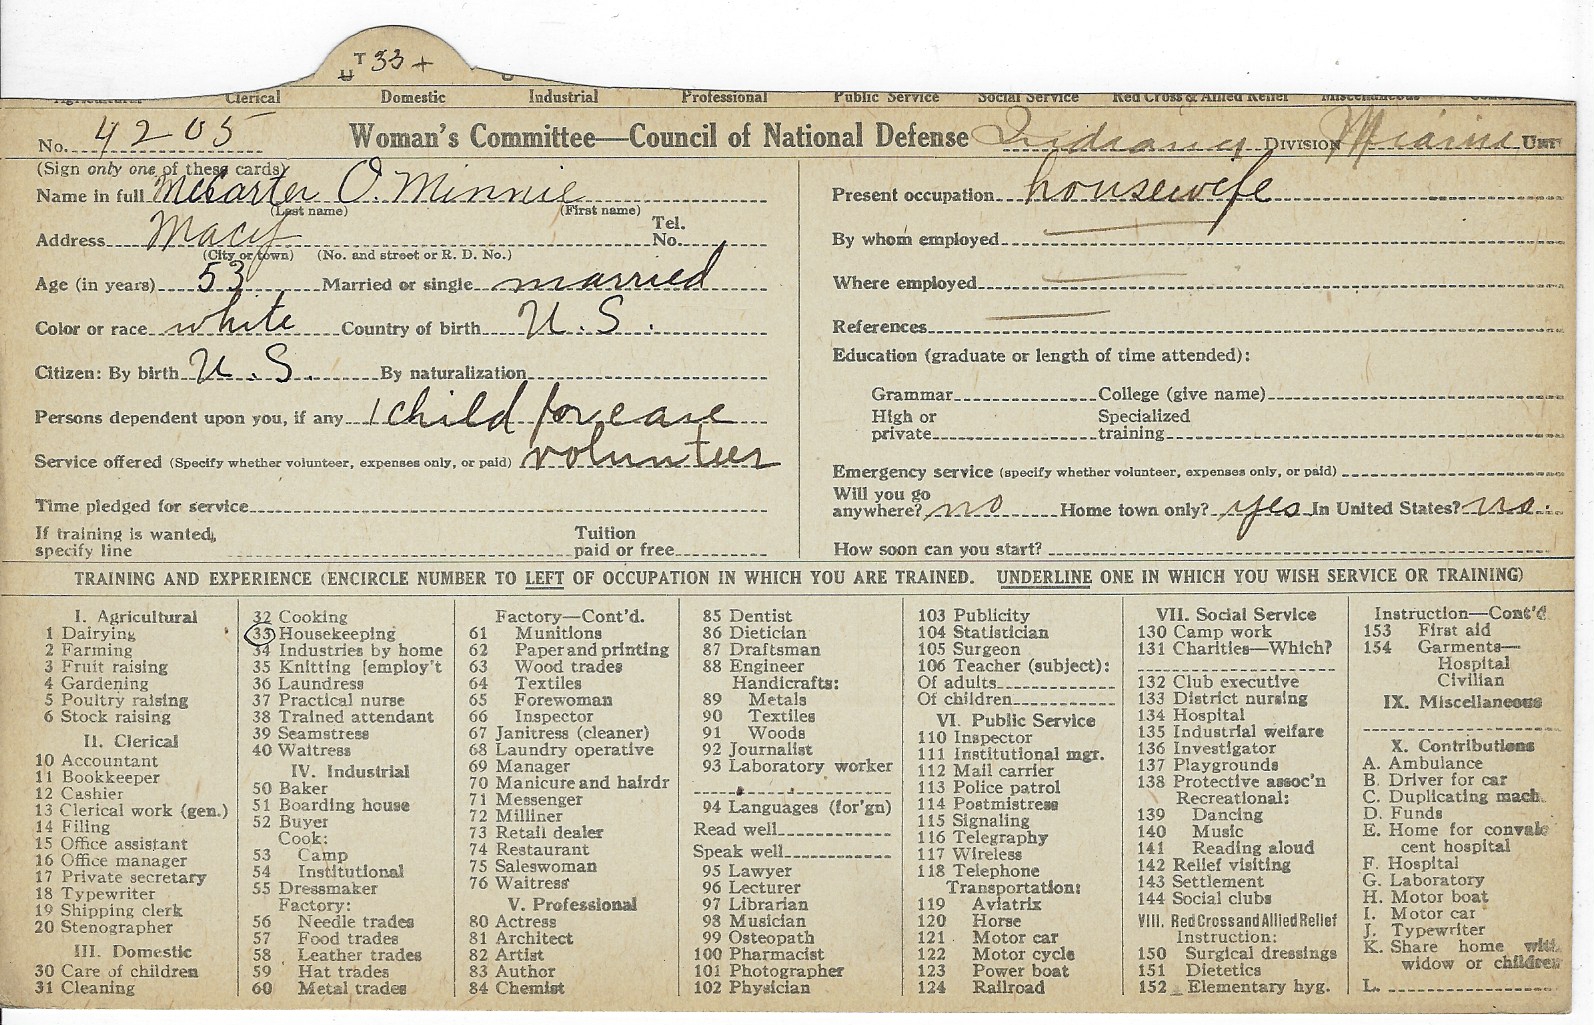 T
U 33 +
Agricultural Clerical Domestic Industrial Professional Public Service Social Service Red Cross & Allied Relief Miscellaneous
No. 4205 Woman's Committee—Council of National Defense Indiana DIVISION Miami UNIT
(Sign only one of these cards)
Name in full McCarter O. Minnie
(Last name) (First name)
Address Macy Tel. No.
(City or town) (No. and street or R. D. No.)
Age (in years) 53 Married or single married
Color or race white Country of birth U. S.
Citizen: By birth U. S. By naturalization
Persons dependent upon you, if any 1 child for care
Service offered (Specify whether volunteer, expenses only, or paid) volunteer
Time pledged for service
If training is wanted, specify line Tuition paid or free
Present occupation housewife
By whom employed
Where employed
References
Education (graduate or length of time attended):
Grammar College (give name)
High or private Specialized training
Emergency service (specify whether volunteer, expenses only, or paid)
Will you go anywhere? no Home town only? yes In United States? no.
How soon can you start?
TRAINING AND EXPERIENCE (ENCIRCLE NUMBER TO LEFT OF OCCUPATION IN WHICH YOU ARE TRAINED. UNDERLINE ONE IN WHICH YOU WISH SERVICE OR TRAINING)
I. Agricultural
1 Dairying
2 Farming
3 Fruit raising
4 Gardening
5 Poultry raising
6 Stock raising
II. Clerical
10 Accountant
11 Bookkeeper
12 Cashier
13 Clerical work (gen.)
14 Filing
15 Office assistant
16 Office manager
17 Private secretary
18 Typewriter
19 Shipping clerk
20 Stenographer
III. Domestic
30 Care of children
31 Cleaning
32 Cooking
33 Housekeeping
34 Industries by home
35 Knitting [employ't
36 Laundress
37 Practical nurse
38 Trained attendant
39 Seamstress
40 Waitress
IV. Industrial
50 Baker
51 Boarding house
52 Buyer
Cook:
53 Camp
54 Institutional
55 Dressmaker
Factory:
56 Needle trades
57 Food trades
58 Leather trades
59 Hat trades
60 Metal trades
Factory—Cont'd.
61 Munitions
62 Paper and printing
63 Wood trades
64 Textiles
65 Forewoman
66 Inspector
67 Janitress (cleaner)
68 Laundry operative
69 Manager
70 Manicure and hairdr
71 Messenger
72 Milliner
73 Retail dealer
74 Restaurant
75 Saleswoman
76 Waitress
V. Professional
80 Actress
81 Architect
82 Artist
83 Author
84 Chemist
85 Dentist
86 Dietician
87 Draftsman
88 Engineer
Handicrafts:
89 Metals
90 Textiles
91 Woods
92 Journalist
93 Laboratory worker
94 Languages (for'gn)
Read well
Speak well
95 Lawyer
96 Lecturer
97 Librarian
98 Musician
99 Osteopath
100 Pharmacist
101 Photographer
102 Physician
103 Publicity
104 Statistician
105 Surgeon
106 Teacher (subject):
Of adults
Of children
VI. Public Service
110 Inspector
111 Institutional mgr.
112 Mail carrier
113 Police patrol
114 Postmistress
115 Signaling
116 Telegraphy
117 Wireless
118 Telephone
Transportation:
119 Aviatrix
120 Horse
121 Motor car
122 Motor cycle
123 Power boat
124 Railroad
VII. Social Service
130 Camp work
131 Charities—Which?
132 Club executive
133 District nursing
134 Hospital
135 Industrial welfare
136 Investigator
137 Playgrounds
138 Protective assoc'n
Recreational:
139 Dancing
140 Music
141 Reading aloud
142 Relief visiting
143 Settlement
144 Social clubs
VIII. Red Cross and Allied Relief
Instruction:
150 Surgical dressings
151 Dietetics
152 Elementary hyg.
Instruction—Cont'd
153 First aid
154 Garments—
Hospital
Civilian
IX. Miscellaneous
X. Contributions
A. Ambulance
B. Driver for car
C. Duplicating mach.
D. Funds
E. Home for convales
cent hospital
F. Hospital
G. Laboratory
H. Motor boat
I. Motor car
J. Typewriter
K. Share home with
widow or children
L.